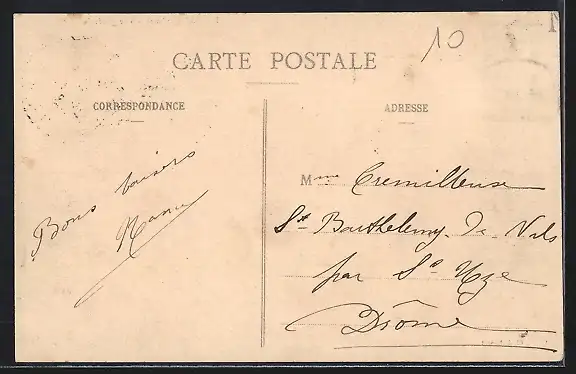 CARTE POSTALE
10
CORRESPONDANCE
ADRESSE
Bons baisers
Mme Cremilleuse
St Barthelemy De Vals
par St Uze
Drôme